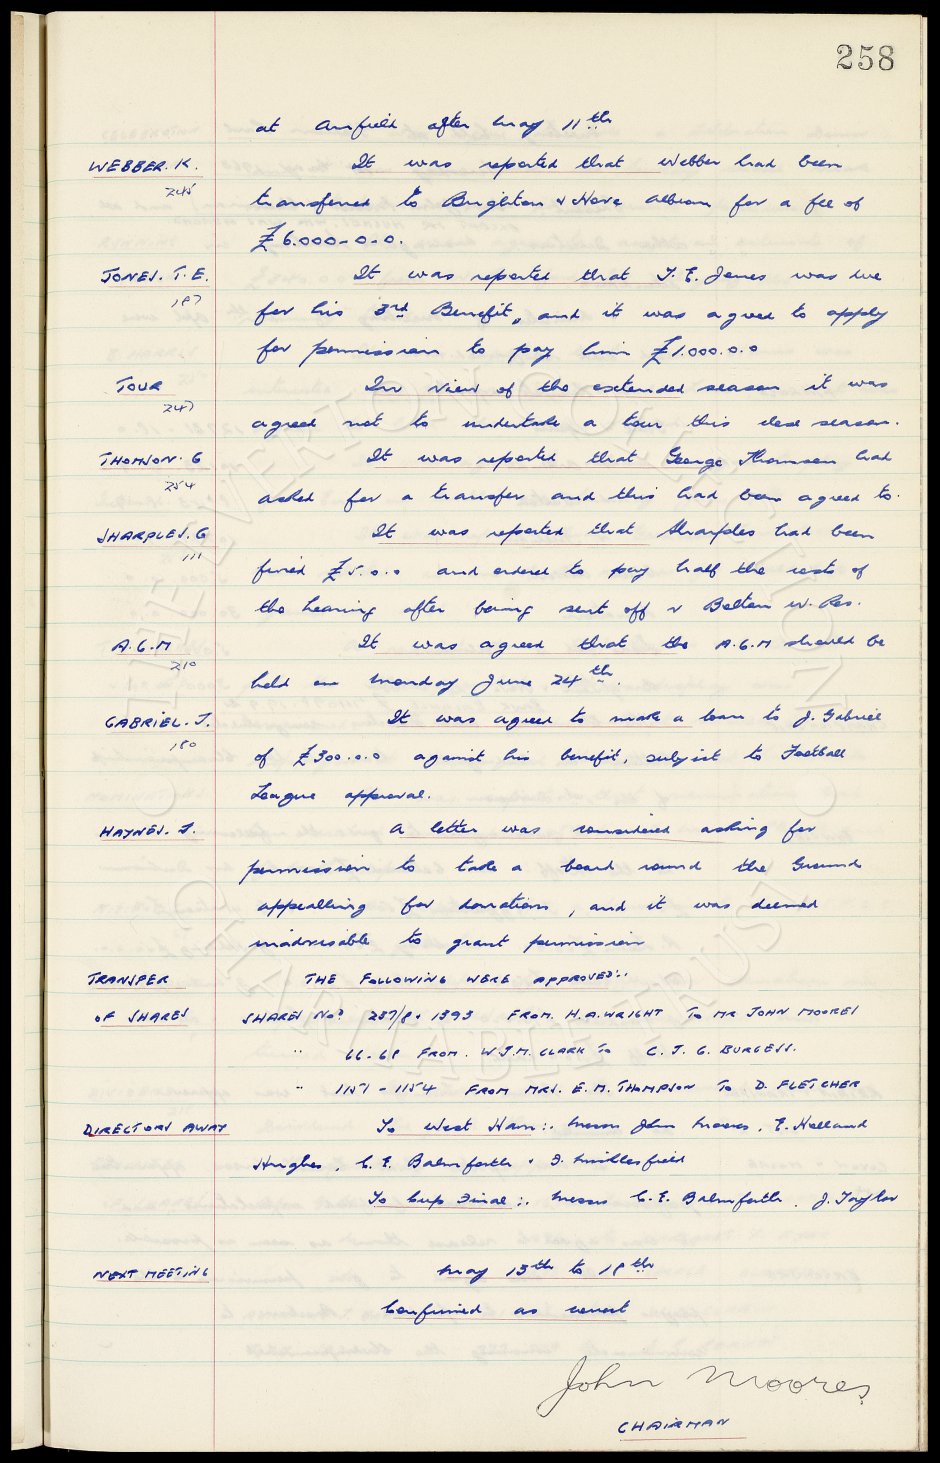 258
at Anfield after May 11th
WEBBER. K. It was reported that Webber had been
245
transferred to Brighton & Hove Albion for a fee of
£6.000-0-0.
JONES. T. E. It was reported that T. E. Jones was due
187
for his 3rd Benefit, and it was agreed to apply
for permission to pay him £1.000.0.0
TOUR In view of the extended season it was
247
agreed not to undertake a tour this close season.
THOMSON. G It was reported that George Thomson had
254
asked for a transfer and this had been agreed to.
SHARPLES. G It was reported that Sharples had been
111
fined £5.0.0 and ordered to pay half the costs of
the hearing after being sent off v Bolton W. Res.
A.G.M It was agreed that the A.G.M should be
210
held on Monday June 24th.
GABRIEL. J. It was agreed to make a loan to J. Gabriel
180
of £300.0.0 against his benefit, subject to Football
League approval.
HAYNES. J. A letter was considered asking for
permission to take a board round the Ground
appealling for donations, and it was deemed
inadvisable to grant permission
TRANSFER THE FOLLOWING WERE APPROVED:.
OF SHARES SHARES Nos 237/8. 1393 FROM. H.A. WRIGHT TO MR JOHN MOORES
" 66-68 FROM. W.J.M. CLARK TO C. J. G. BURGESS.
" 1151-1154 FROM MRS. E. M. THOMPSON TO D. FLETCHER
DIRECTORS AWAY To West Ham:. Messrs John Moores, E. Holland
Hughes, C. E. Balmforth &
To Cup Final:. Messrs C. E. Balmforth, J. Taylor
NEXT MEETING May 13th to 18th
Confirmed as correct
John Moores
CHAIRMAN
EVERTON COLLECTION
CHARITABLE TRUST